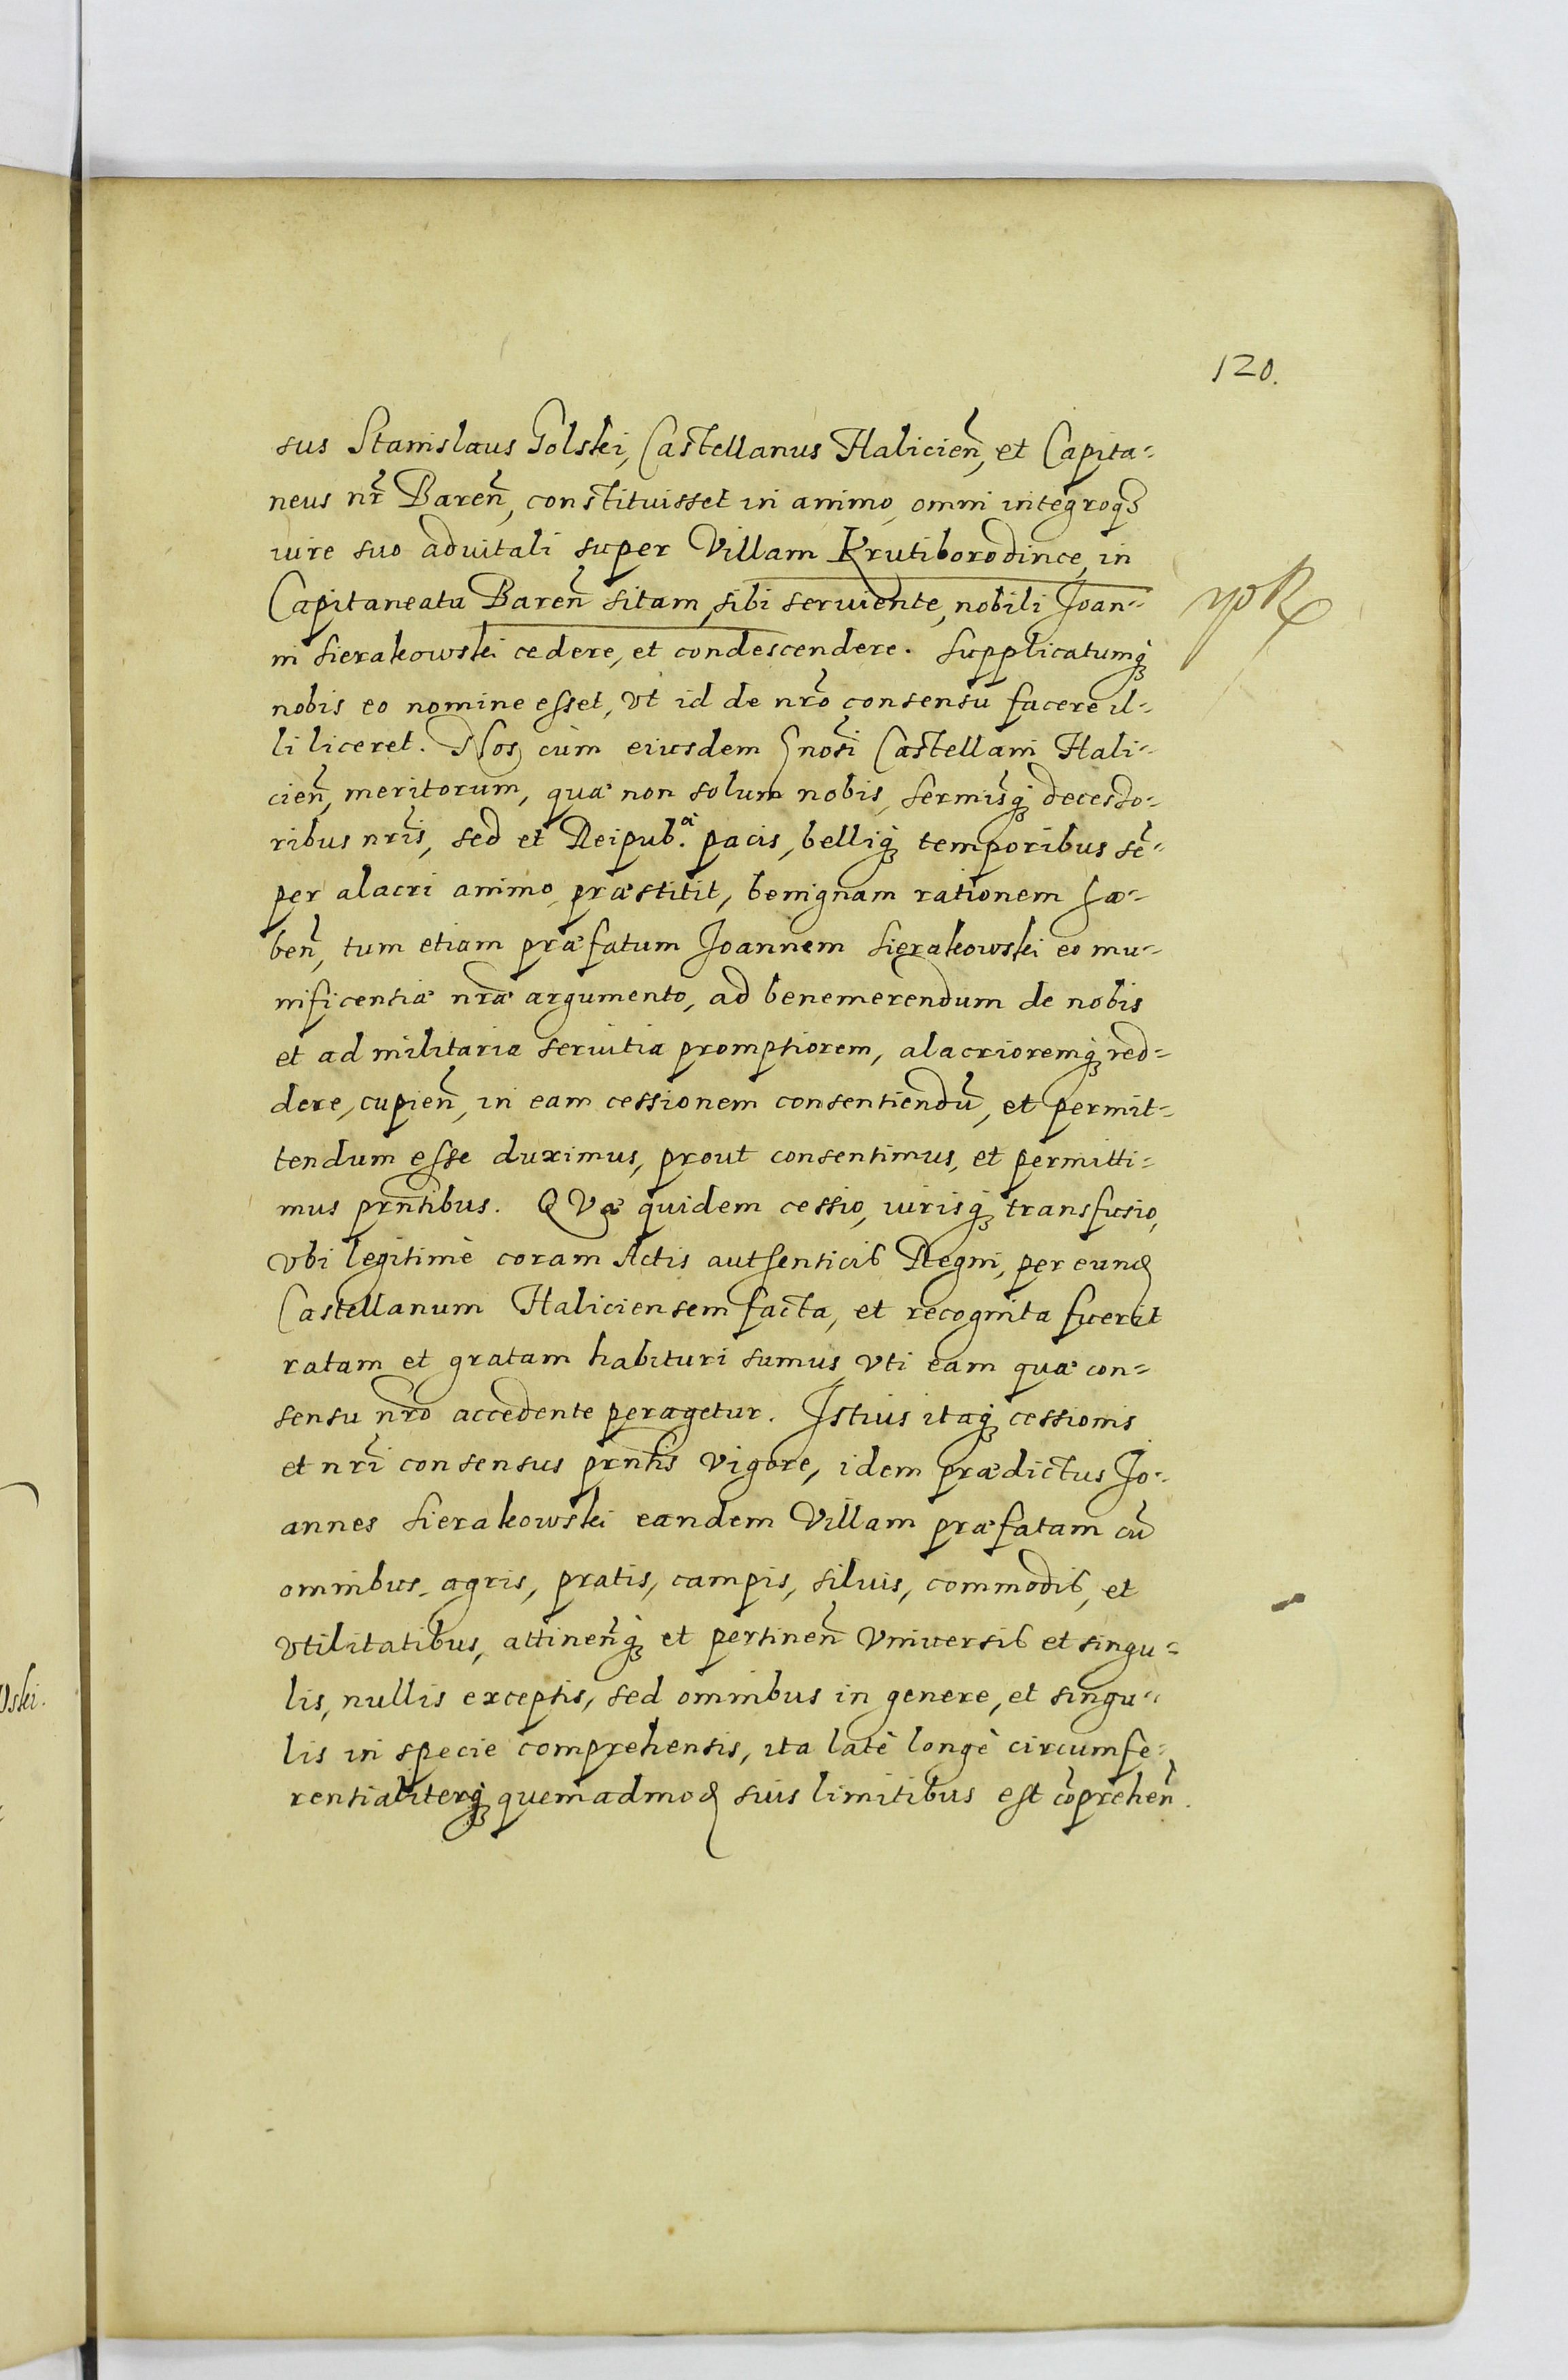 120.
sus Stanislaus Golski, Castellanus Halicien̄, et Capita-
neus nr̄ Baren̄, constituisset in animo, omni integroqꝫ
iure suo aduitali super Villam Krutiborodince, in
Capitaneatu Baren̄ sitam, sibi seruiente, nobili Joan-
ni Sierakowski cedere, et condescendere. Supplicatumqꝫ
nobis eo nomine esset, vt id de nr̄o consensu facere il-
li liceret. Nos cùm eiusdem Gnosi Castellani Hali-
cien̄, meritorum, quæ non solum nobis, Sermisqꝫ decesso-
ribus nr̄is, sed et Reipub.ꝫ pacis, belliqꝫ temporibus sē-
per alacri animo præstitit, benignam rationem ha-
ben̄, tum etiam præfatum Joannem Sierakowski eo mu-
nificentiæ nr̄æ argumento, ad benemerendum de nobis
et ad militaria seruitia promptiorem, alacrioremqꝫ red-
dere, cupien̄, in eam cessionem consentiendū, et permit-
tendum esse duximus, prout consentimus, et permitti-
mus prn̄tibus. QVæ quidem cessio, iurisqꝫ transfusio,
vbi legitimè coram Actis authenticis Regni, per eunđ
Castellanum Haliciensem facta, et recognita fuerit
ratam et gratam habituri sumus, vti eam quæ con-
sensu nr̄o accedente peragetur. Istius itaqꝫ cessionis
et nr̄i consensus prn̄tis vigore, idem prædictus Jo-
annes Sierakowski eandem Villam præfatam cū
omnibus, agris, pratis, campis, siluis, commodis, et
vtilitatibus, attinen̄qꝫ et pertinen̄ vniuersis et singu-
lis, nullis exceptis, sed omnibus in genere, et singu-
lis in specie comprehensis, ita latè longè circumfe-
rentialiterqꝫ quemadmođ suis limitibus est cōprehen̄.